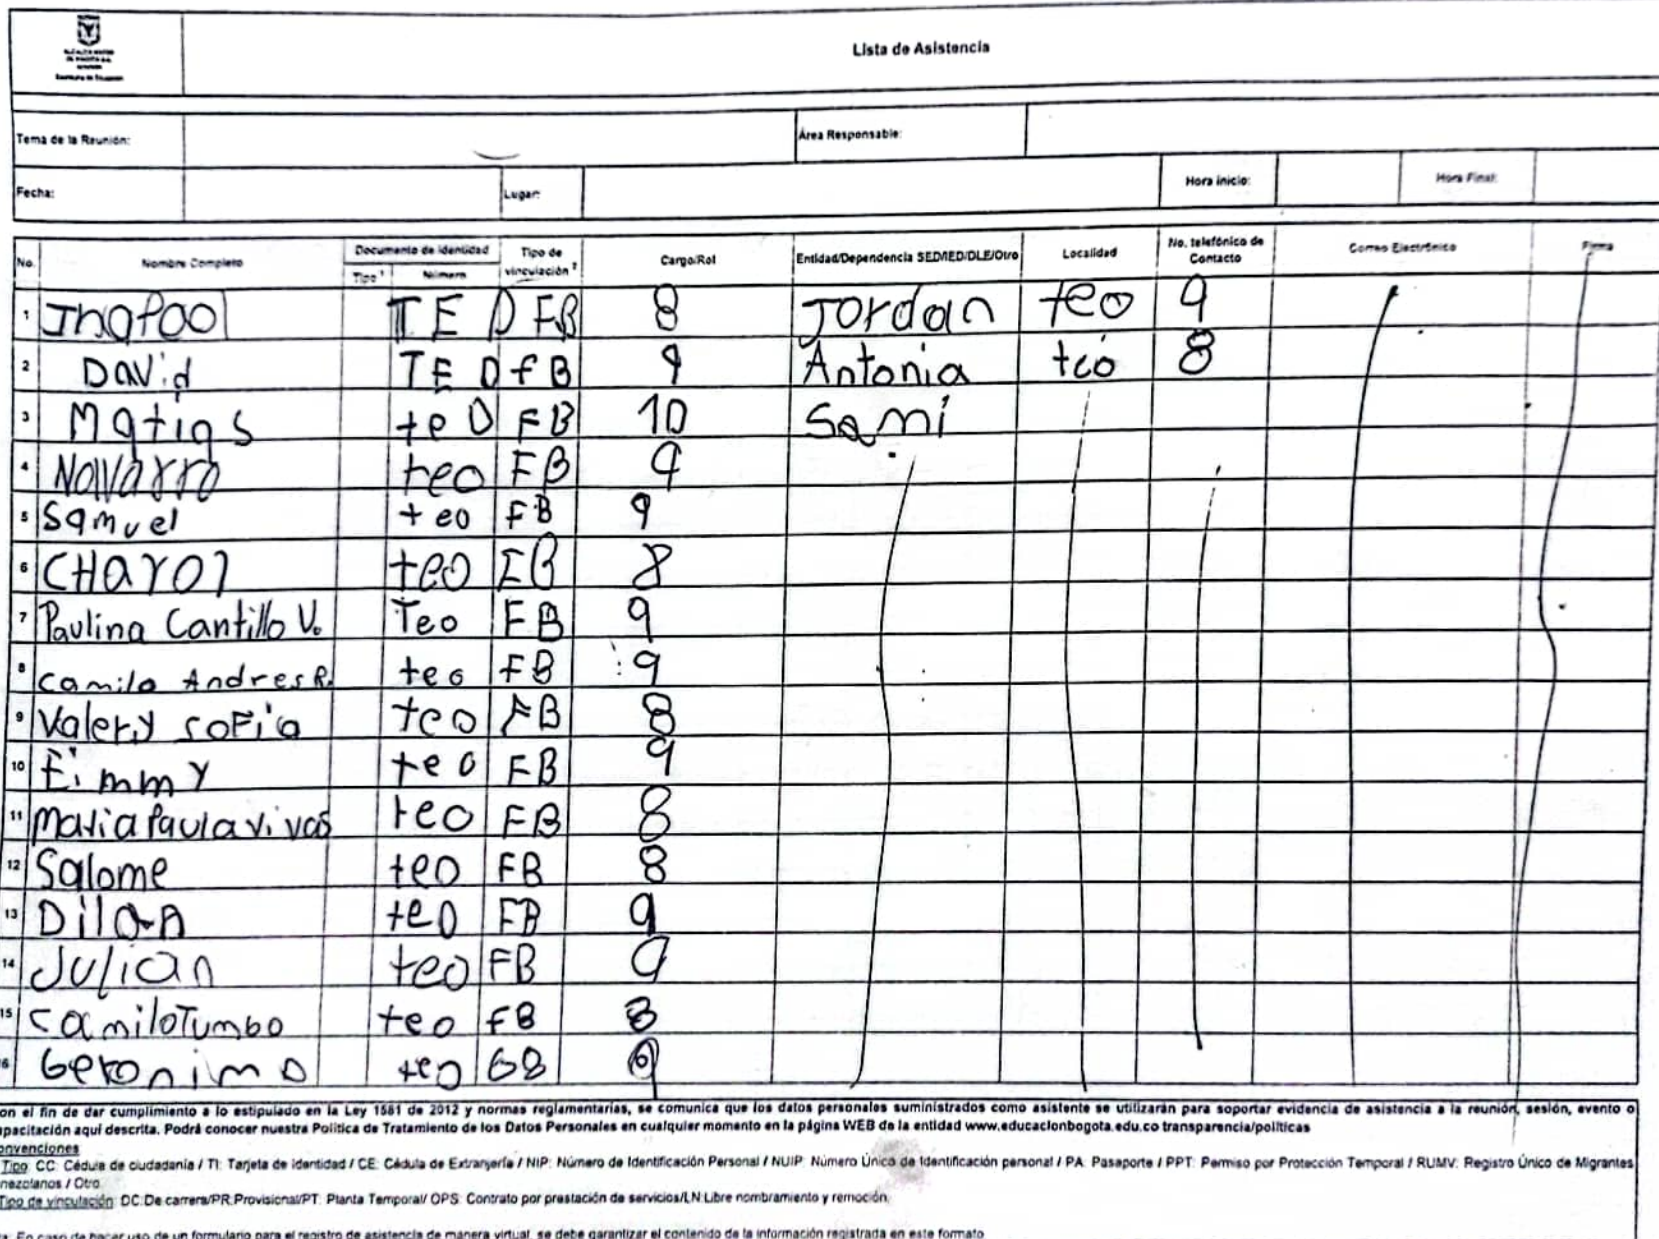 ALCALDÍA MAYOR
DE BOGOTÁ D.C.
Secretaría de Educación
Lista de Asistencia
Tema de la Reunión: Área Responsable:
Fecha: Lugar: Hora inicio: Hora Final:
No. Nombre Completo Documento de identidad Tipo de vinculación ² Cargo/Rol Entidad/Dependencia SED/IED/DLE/Otro Localidad No. telefónico de Contacto Correo Electrónico Firma
Tipo ¹ Número
1 Jhofool TE D FB 8 Jordan teo 9
2 David TE D fB 9 Antonia teo 8
3 Matias teD FB 10 Sami
4 Navarro teo FB 9
5 Samuel teo FB 9
6 CHarol teo FB 8
7 Paulina Cantillo V. Teo FB 9
8 camilo Andres R. teo FB 9
9 Valery soFia teo FB 8
10 Eimmy teo FB 9
11 maria Paula vivas teo FB 8
12 Salome teo FB 8
13 Dilan teo FB 9
14 Julian teo FB 9
15 camilo Tumbo teo FB 8
6 Geronimo teo GB 9
on el fin de dar cumplimiento a lo estipulado en la Ley 1581 de 2012 y normas reglamentarias, se comunica que los datos personales suministrados como asistente se utilizarán para soportar evidencia de asistencia a la reunión, sesión, evento o
pacitación aquí descrita. Podrá conocer nuestra Política de Tratamiento de los Datos Personales en cualquier momento en la página WEB de la entidad www.educacionbogota.edu.co transparencia/políticas
onvenciones
Tipo: CC: Cédula de ciudadanía / TI: Tarjeta de identidad / CE: Cédula de Extranjería / NIP: Número de Identificación Personal / NUIP: Número Único de Identificación personal / PA: Pasaporte / PPT: Permiso por Protección Temporal / RUMV: Registro Único de Migrantes
nezolanos / Otro.
Tipo de vinculación: DC:De carrera/PR:Provisional/PT: Planta Temporal/ OPS: Contrato por prestación de servicios/LN:Libre nombramiento y remoción.
a: En caso de hacer uso de un formulario para el registro de asistencia de manera virtual, se debe garantizar el contenido de la información registrada en este formato